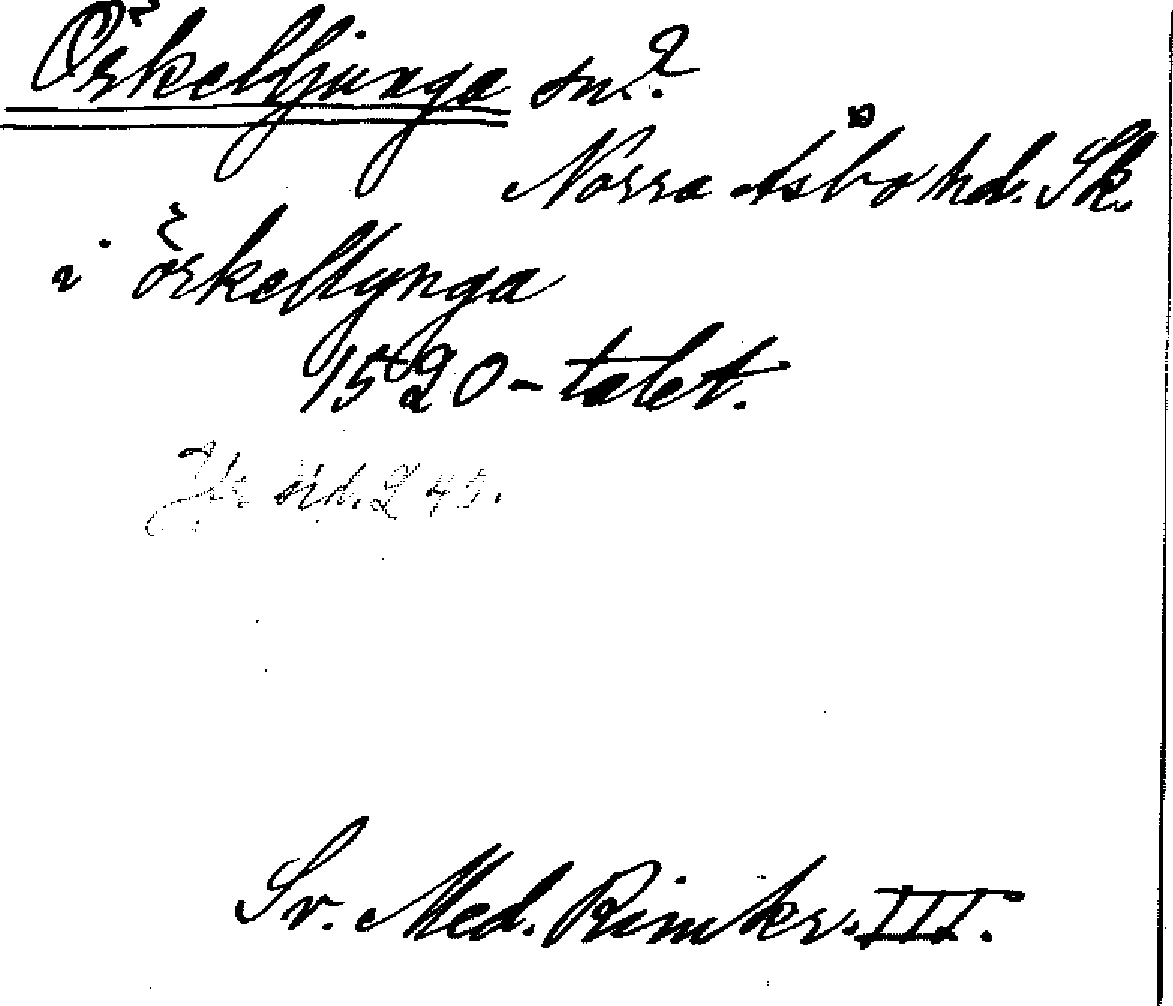 Örkelljunga sn?
Norra Åsbo hd. Sk.
i örkellynga
1520-talet.
Jfr
Sv. Med. Rimkr. III.